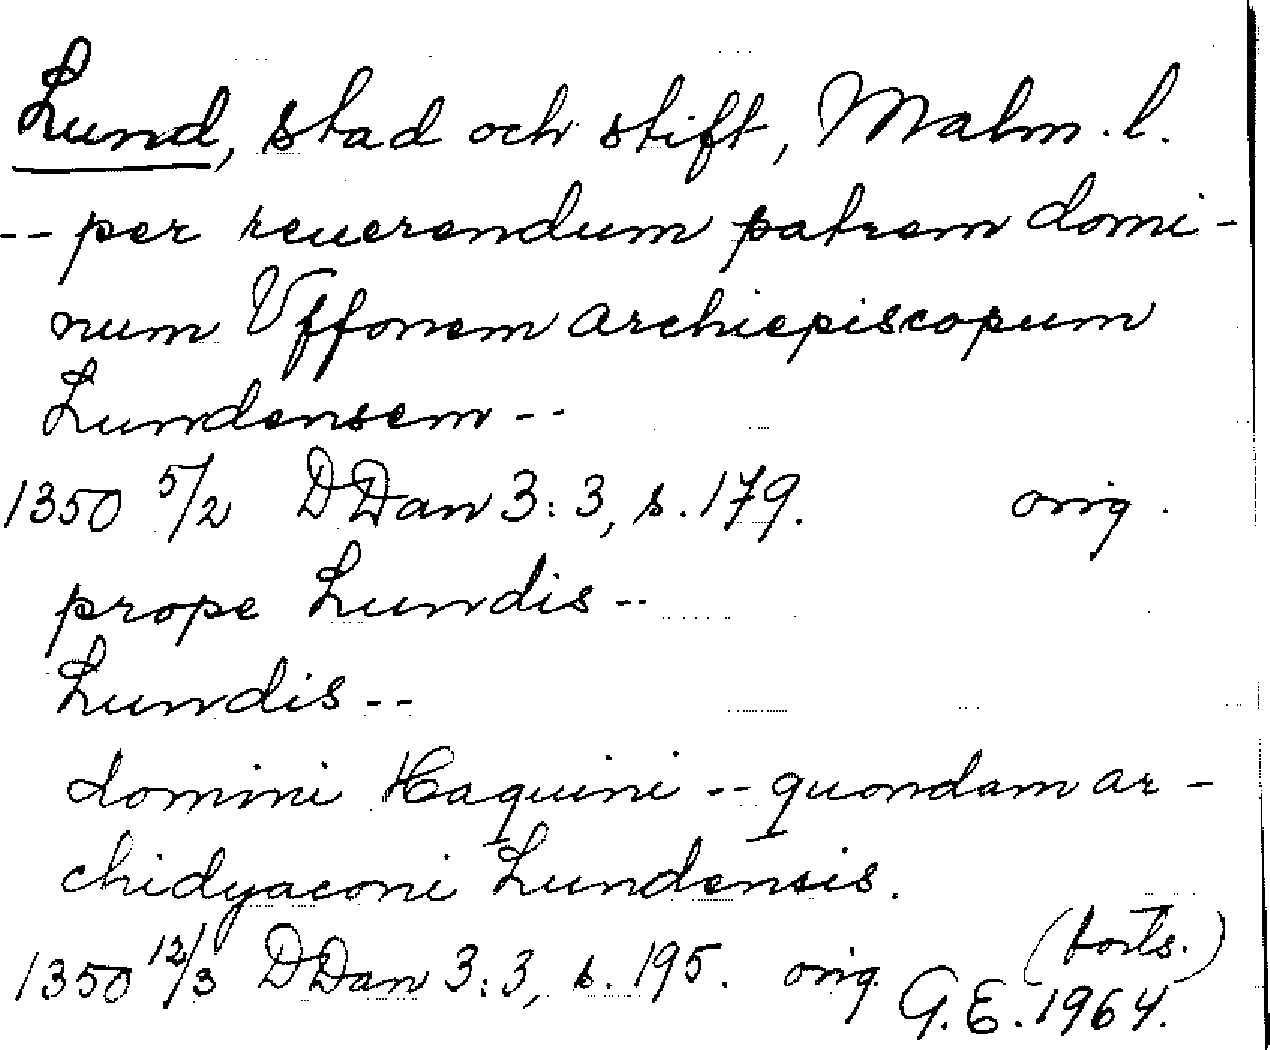 Lund, stad och stift, Malm. l.
-- per reuerendum patrem domi-
num Vffonem archiepiscopum
Lundensem --
1350 5/2 DDan 3:3, s. 179. orig.
prope Lundis --
Lundis --
domini Haquini -- quondam ar-
chidyaconi Lundensis.
1350 12/3 DDan 3:3, s. 195. orig. (forts.)
G.E. 1964.